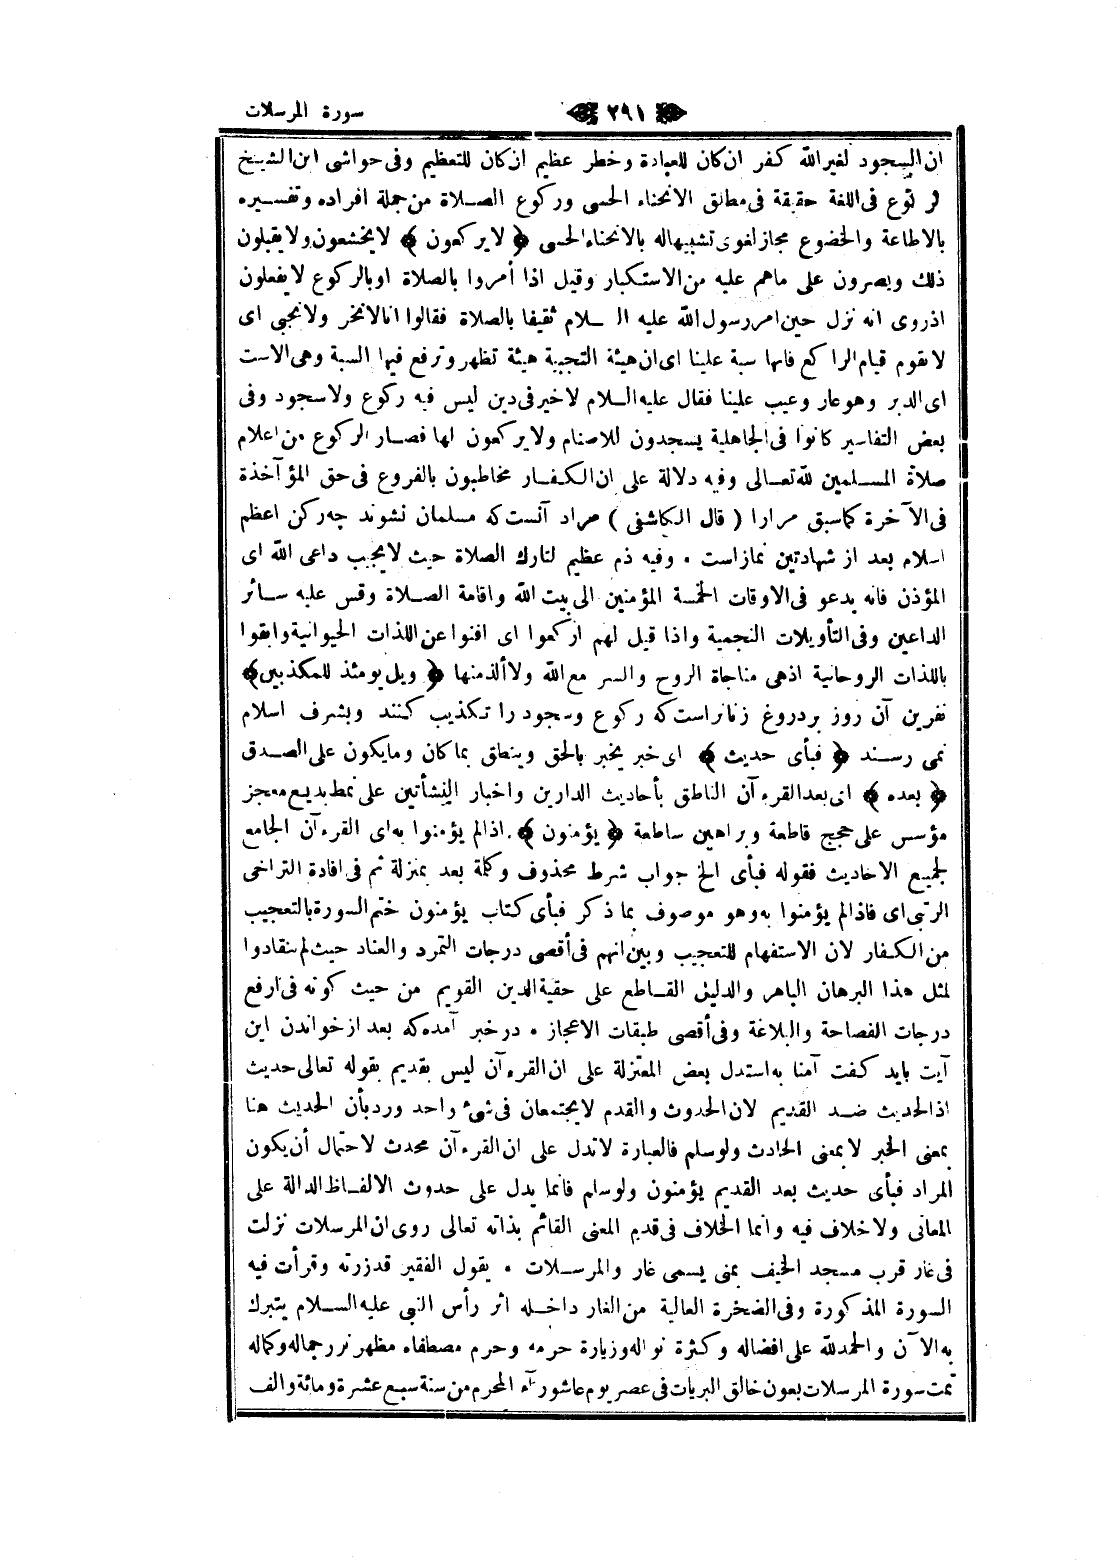 سورة المرسلات ٢٩١
ان السجود لغير الله كفر ان كان للعبادة وخطر عظيم ان كان للتعظيم وفى حواشى ابن الشيخ
الركوع فى اللغة حقيقة فى مطلق الانحناء الحسى وركوع الصلاة من جملة افراده وتفسيره
بالاطاعة والخضوع مجاز لغوى تشبيها له بالانحناء الحسى ﴿ لا يركعون ﴾ لا يخشعون ولا يقبلون
ذلك ويصرون على ماهم عليه من الاستكبار وقيل اذا أمروا بالصلاة او بالركوع لا يفعلون
اذ روى انه نزل حين امر رسول الله عليه السلام ثقيفا بالصلاة فقالوا انا لانخر ولا نجبى اى
لا نقوم قيام الراكع فانها سبة علينا اى ان هيئة التجبية هيئة تظهر وترفع فيها السبة وهى الاست
اى الدبر وهو عار وعيب علينا فقال عليه السلام لاخير فى دين ليس فيه ركوع ولا سجود وفى
بعض التفاسير كانوا فى الجاهلية يسجدون للاصنام ولا يركعون لها فصار الركوع من اعلام
صلاة المسلمين لله تعالى وفيه دلالة على ان الكفار مخاطبون بالفروع فى حق المؤآخذة
فى الآخرة كما سبق مرارا ( قال الكاشفى ) مراد آنست كه مسلمان نشوند چه ركن اعظم
اسلام بعد از شهادتين نمازاست . وفيه ذم عظيم لتارك الصلاة حيث لا يجيب داعى الله اى
المؤذن فانه يدعو فى الاوقات الخمسة المؤمنين الى بيت الله واقامة الصلاة وقس عليه سائر
الداعين وفى التأويلات النجمية واذا قيل لهم اركعوا اى افنوا عن اللذات الحيوانية وابقوا
باللذات الروحانية اذهى مناجاة الروح والسر مع الله ولا ألذ منها ﴿ ويل يومئذ للمكذبين ﴾
نفرين آن روز بر دروغ زنانراست كه ركوع وسجود را تكذيب كنند وبشرف اسلام
نمى رسند ﴿ فبأى حديث ﴾ اى خبر يخبر بالحق وينطق بما كان وما يكون على الصدق
﴿ بعده ﴾ اى بعد القرءآن الناطق بأحاديث الدارين واخبار النشأتين على نمط بديع معجز
مؤسس على حجج قاطعة وبراهين ساطعة ﴿ يؤمنون ﴾ . اذا لم يؤمنوا به اى القرءآن الجامع
لجميع الاحاديث فقوله فبأى الخ جواب شرط محذوف وكلمة بعد بمنزلة ثم فى افادة التراخى
الرتبى اى فاذا لم يؤمنوا به وهو موصوف بما ذكر فبأى كتاب يؤمنون ختم السورة بالتعجيب
من الكفار لان الاستفهام للتعجيب وبين انهم فى أقصى درجات التمرد والعناد حيث لم ينقادوا
لمثل هذا البرهان الباهر والدليل القاطع على حقية الدين القويم من حيث كونه فى ارفع
درجات الفصاحة والبلاغة وفى أقصى طبقات الاعجاز . درخبر آمده كه بعد از خواندن اين
آيت بايد كفت آمنا به استدل بعض المعتزلة على ان القرءآن ليس بقديم بقوله تعالى حديث
اذ الحديث ضد القديم لان الحدوث والقدم لا يجتمعان فى شئ واحد ورد بأن الحديث هنا
بمعنى الخبر لا بمعنى الحادث ولو سلم فالعبارة لا تدل على ان القرءآن محدث لا حتمال أن يكون
المراد فبأى حديث بعد القديم يؤمنون ولو سلم فانما يدل على حدوث الالفاظ الدالة على
المعانى ولا خلاف فيه وانما الخلاف فى قديم المعنى القائم بذاته تعالى روى ان المرسلات نزلت
فى غار قرب مسجد الخيف بمنى يسمى غار والمرسلات . يقول الفقير قد زرته وقرأت فيه
السورة المذكورة وفى الصخرة العالية من الغار داخله اثر رأس النبى عليه السلام يتبرك
به الآن والحمد لله على افضاله وكثرة نواله وزيارة حرمه وحرم مصطفاه مظهر نور جماله وكماله
تمت سورة المرسلات بعون خالق البريات فى عصر يوم عاشورآء المحرم من سنة سبع عشرة ومائة والف